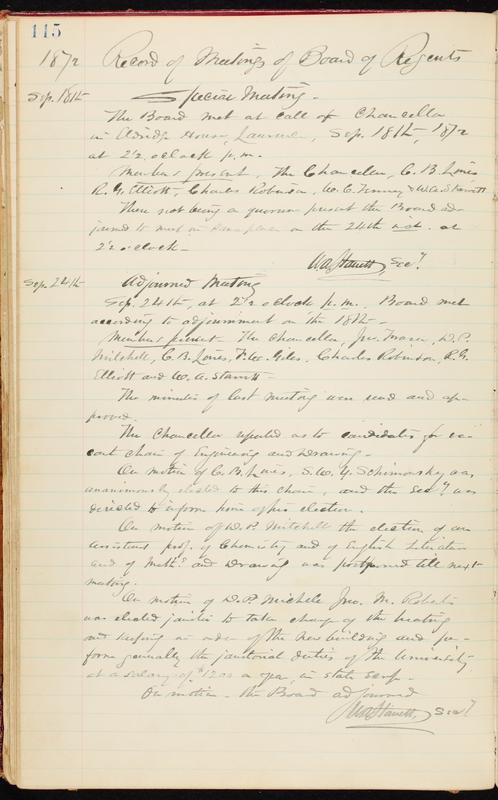 115
1872 Record of Meetings of Board of Regents
Sep. 18th Special Meeting -
The Board met at call of Chancellor
in Eldridge House, Lawrence, Sep. 18th, 1872
at 2½ o'clock p.m.
Members present, The Chancellor, C. B. Lines
R. G. Elliott, Charles Robinson, W. C. Tenney & W. A. Starrett
There not being a quorum present the Board ad-
journed to meet in same place on the 24th inst. at
2½ o'clock -
W. A. Starrett, Secy.
Sep. 24th Adjourned Meeting
Sep. 24th, at 2½ o'clock p.m. Board met
according to adjournment on the 18th -
Members present The Chancellor, Jno. Fraser, D. P.
Mitchell, C. B. Lines, F. W. Giles, Charles Robinson, R. G.
Elliott and W. A. Starrett -
The minutes of last meeting were read and ap-
proved.
The Chancellor reported as to candidates for va-
cant chair of Engineering and Drawing -
On motion of C. B. Lines, S. W. Y. Schimonsky was
unanimously elected to this chair, and the Secy. was
directed to inform him of his election.
On motion of D. P. Mitchell the election of an
assistant prof. of Chemistry and of English Literature
and of Maths. and Drawing was postponed till next
meeting.
On motion of D. P. Michell Jno. M. Roberts
was elected janitor to take charge of the heating
and keeping in order of the new building and per-
form generally the janitorial duties of the University
at a salary of $1200 a year, in state scrip -
On motion - the Board adjourned
W. A. Starrett, Secy.